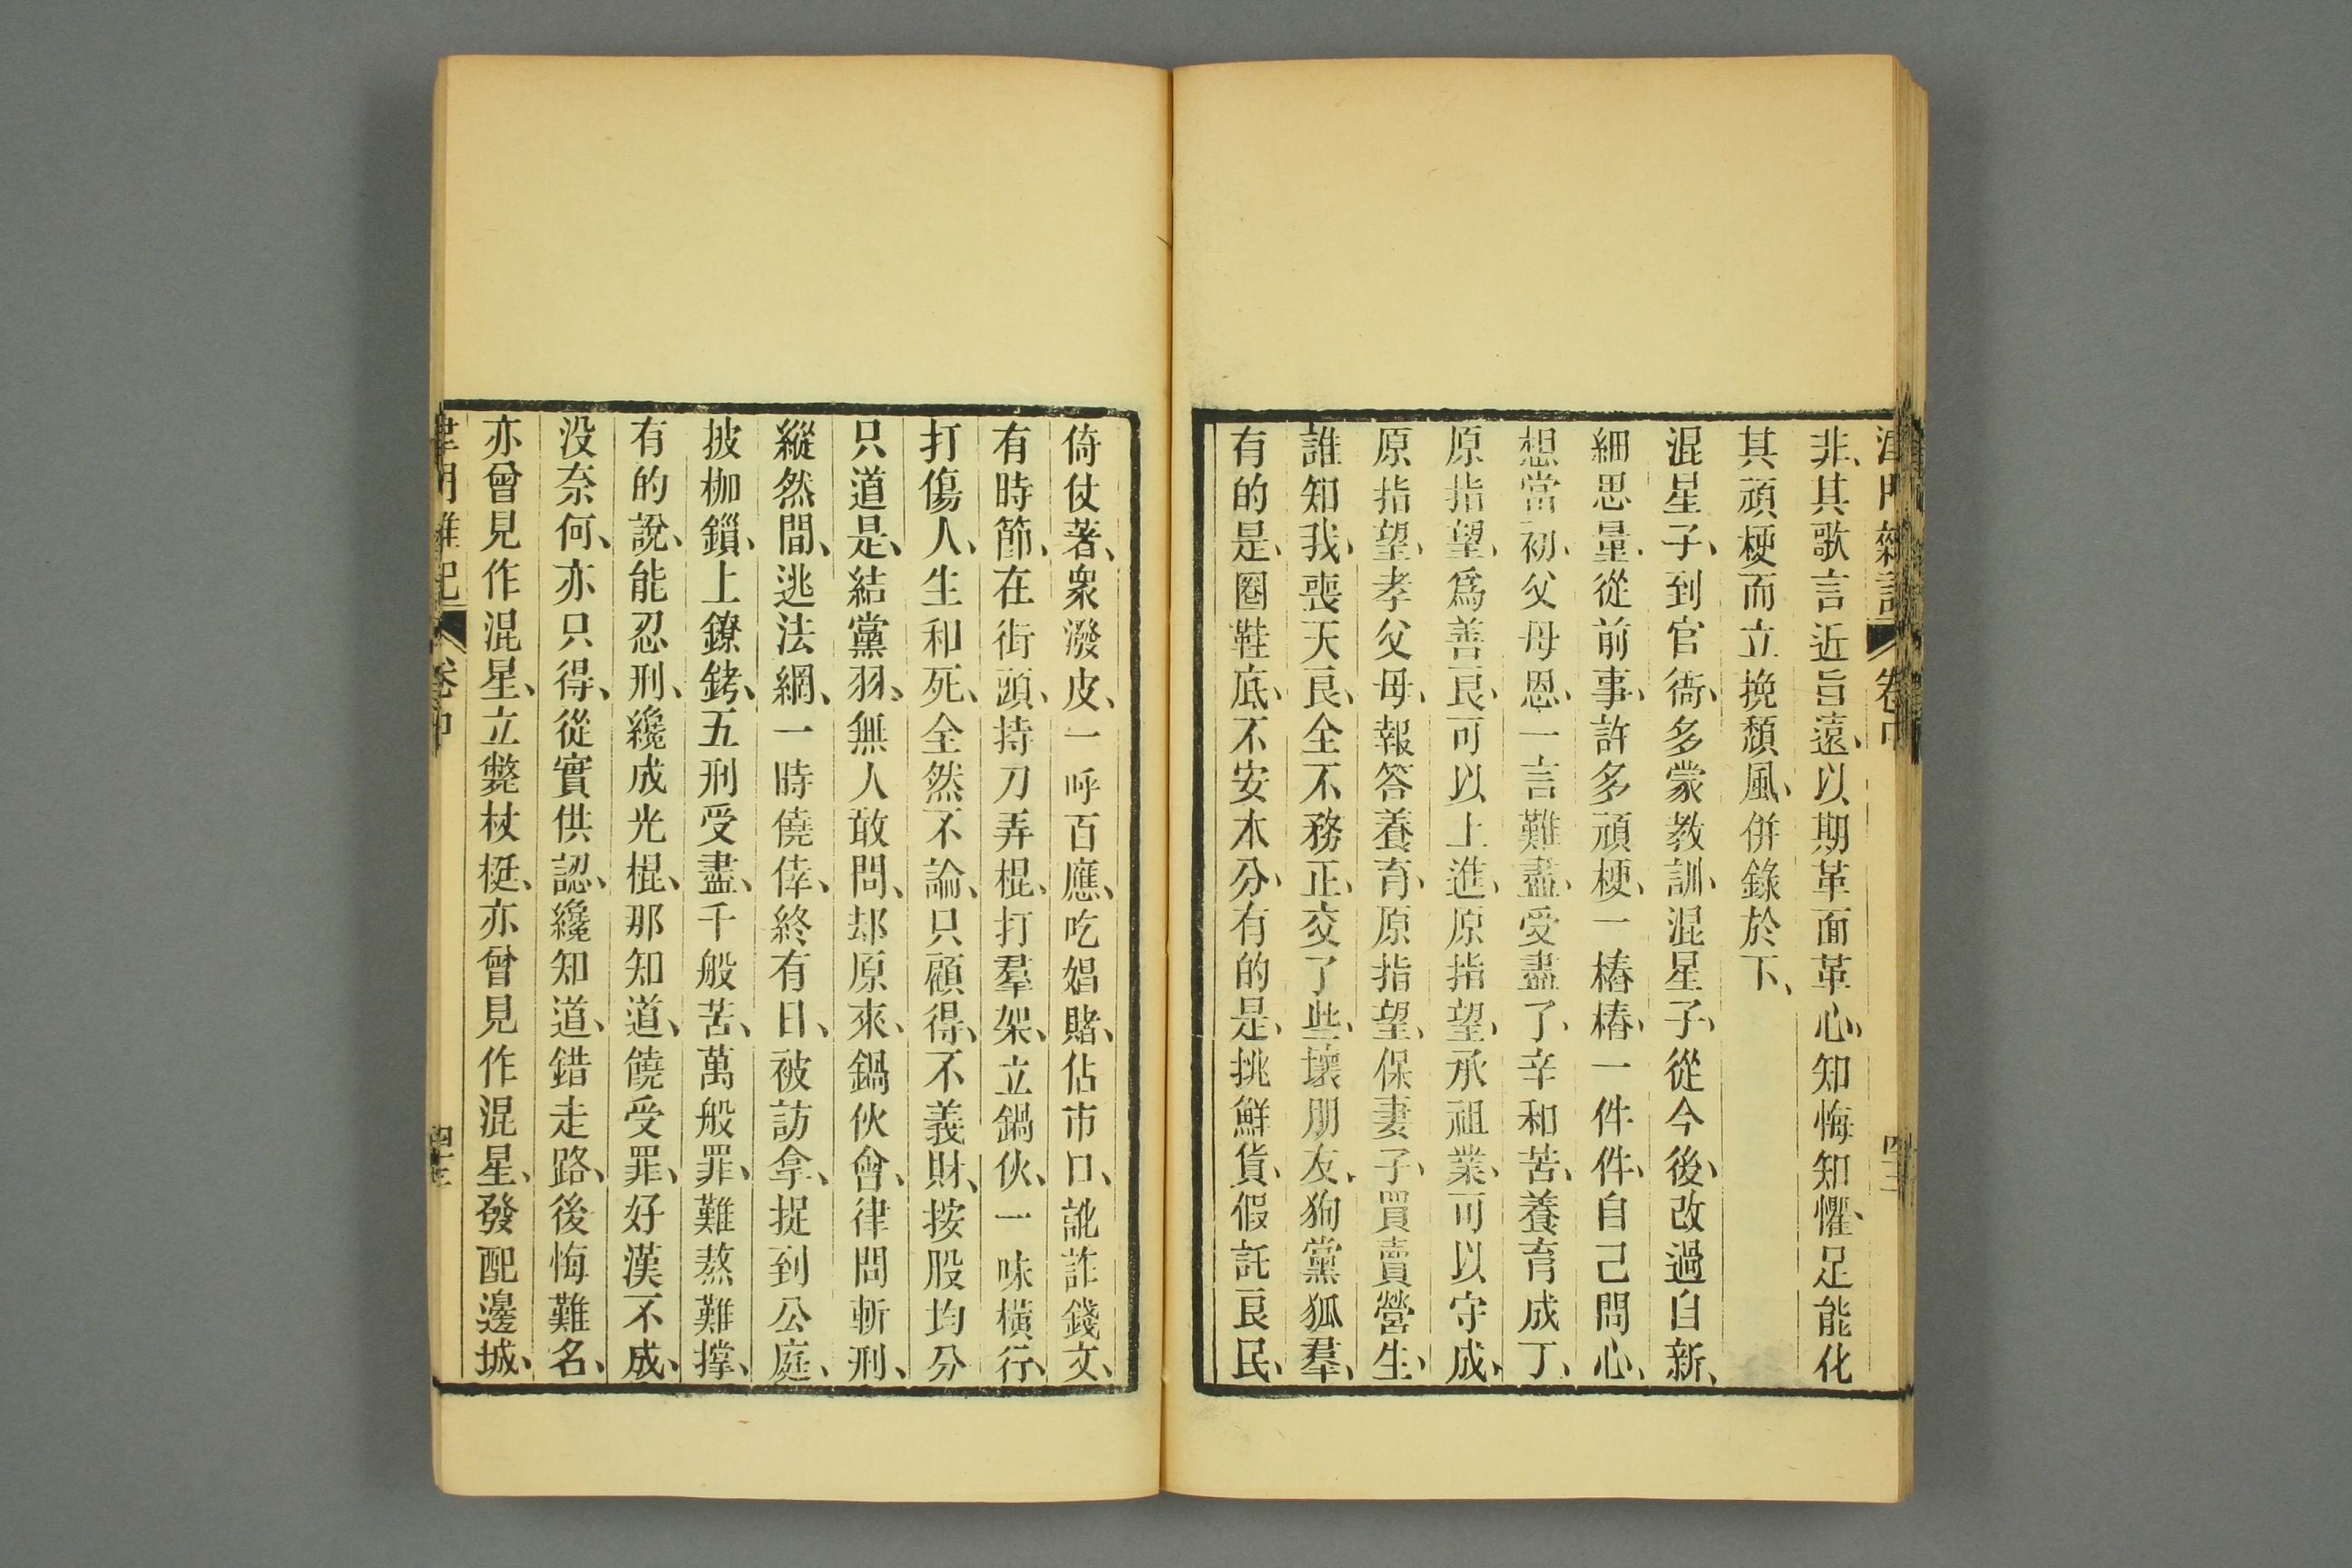 非、其歌言近旨遠、以期革面革心、知悔知懼、足能化
其頑梗而立挽頹風、併錄於下、
混星子、到官衙、多蒙教訓、混星子、從今後、改過自新、
細思量、從前事、許多頑梗、一樁樁、一件件、自己問心、
想當初、父母恩、一言難盡、受盡了、辛和苦、養育成丁、
原指望、爲善良、可以上進、原指望、承祖業、可以守成、
原指望、孝父母、報答養育、原指望、保妻子、買賣營生、
誰知我、喪天良、全不務正、交了些、壞朋友、狗黨狐羣、
有的是、圈鞋底、不安本分、有的是、挑鮮貨、假託良民、
倚仗著、衆潑皮、一呼百應、吃娼賭、佔市口、訛詐錢文、
有時節、在街頭、持刀弄棍、打羣架、立鍋伙、一味橫行、
打傷人、生和死、全然不論、只顧得、不義財、按股均分
只道是、結黨羽、無人敢問、却原來、鍋伙會、律問斬刑、
縱然間、逃法網、一時僥倖、終有日、被訪拿、捉到公庭、
披枷鎖、上鐐銬、五刑受盡、千般苦、萬般罪、難熬難撐、
有的說、能忍刑、纔成光棍、那知道、饒受罪、好漢不成、
没奈何、亦只得、從實供認、纔知道、錯走路、後悔難名、
亦曾見作混星、立斃杖梃、亦曾見作混星、發配邊城、
卷中